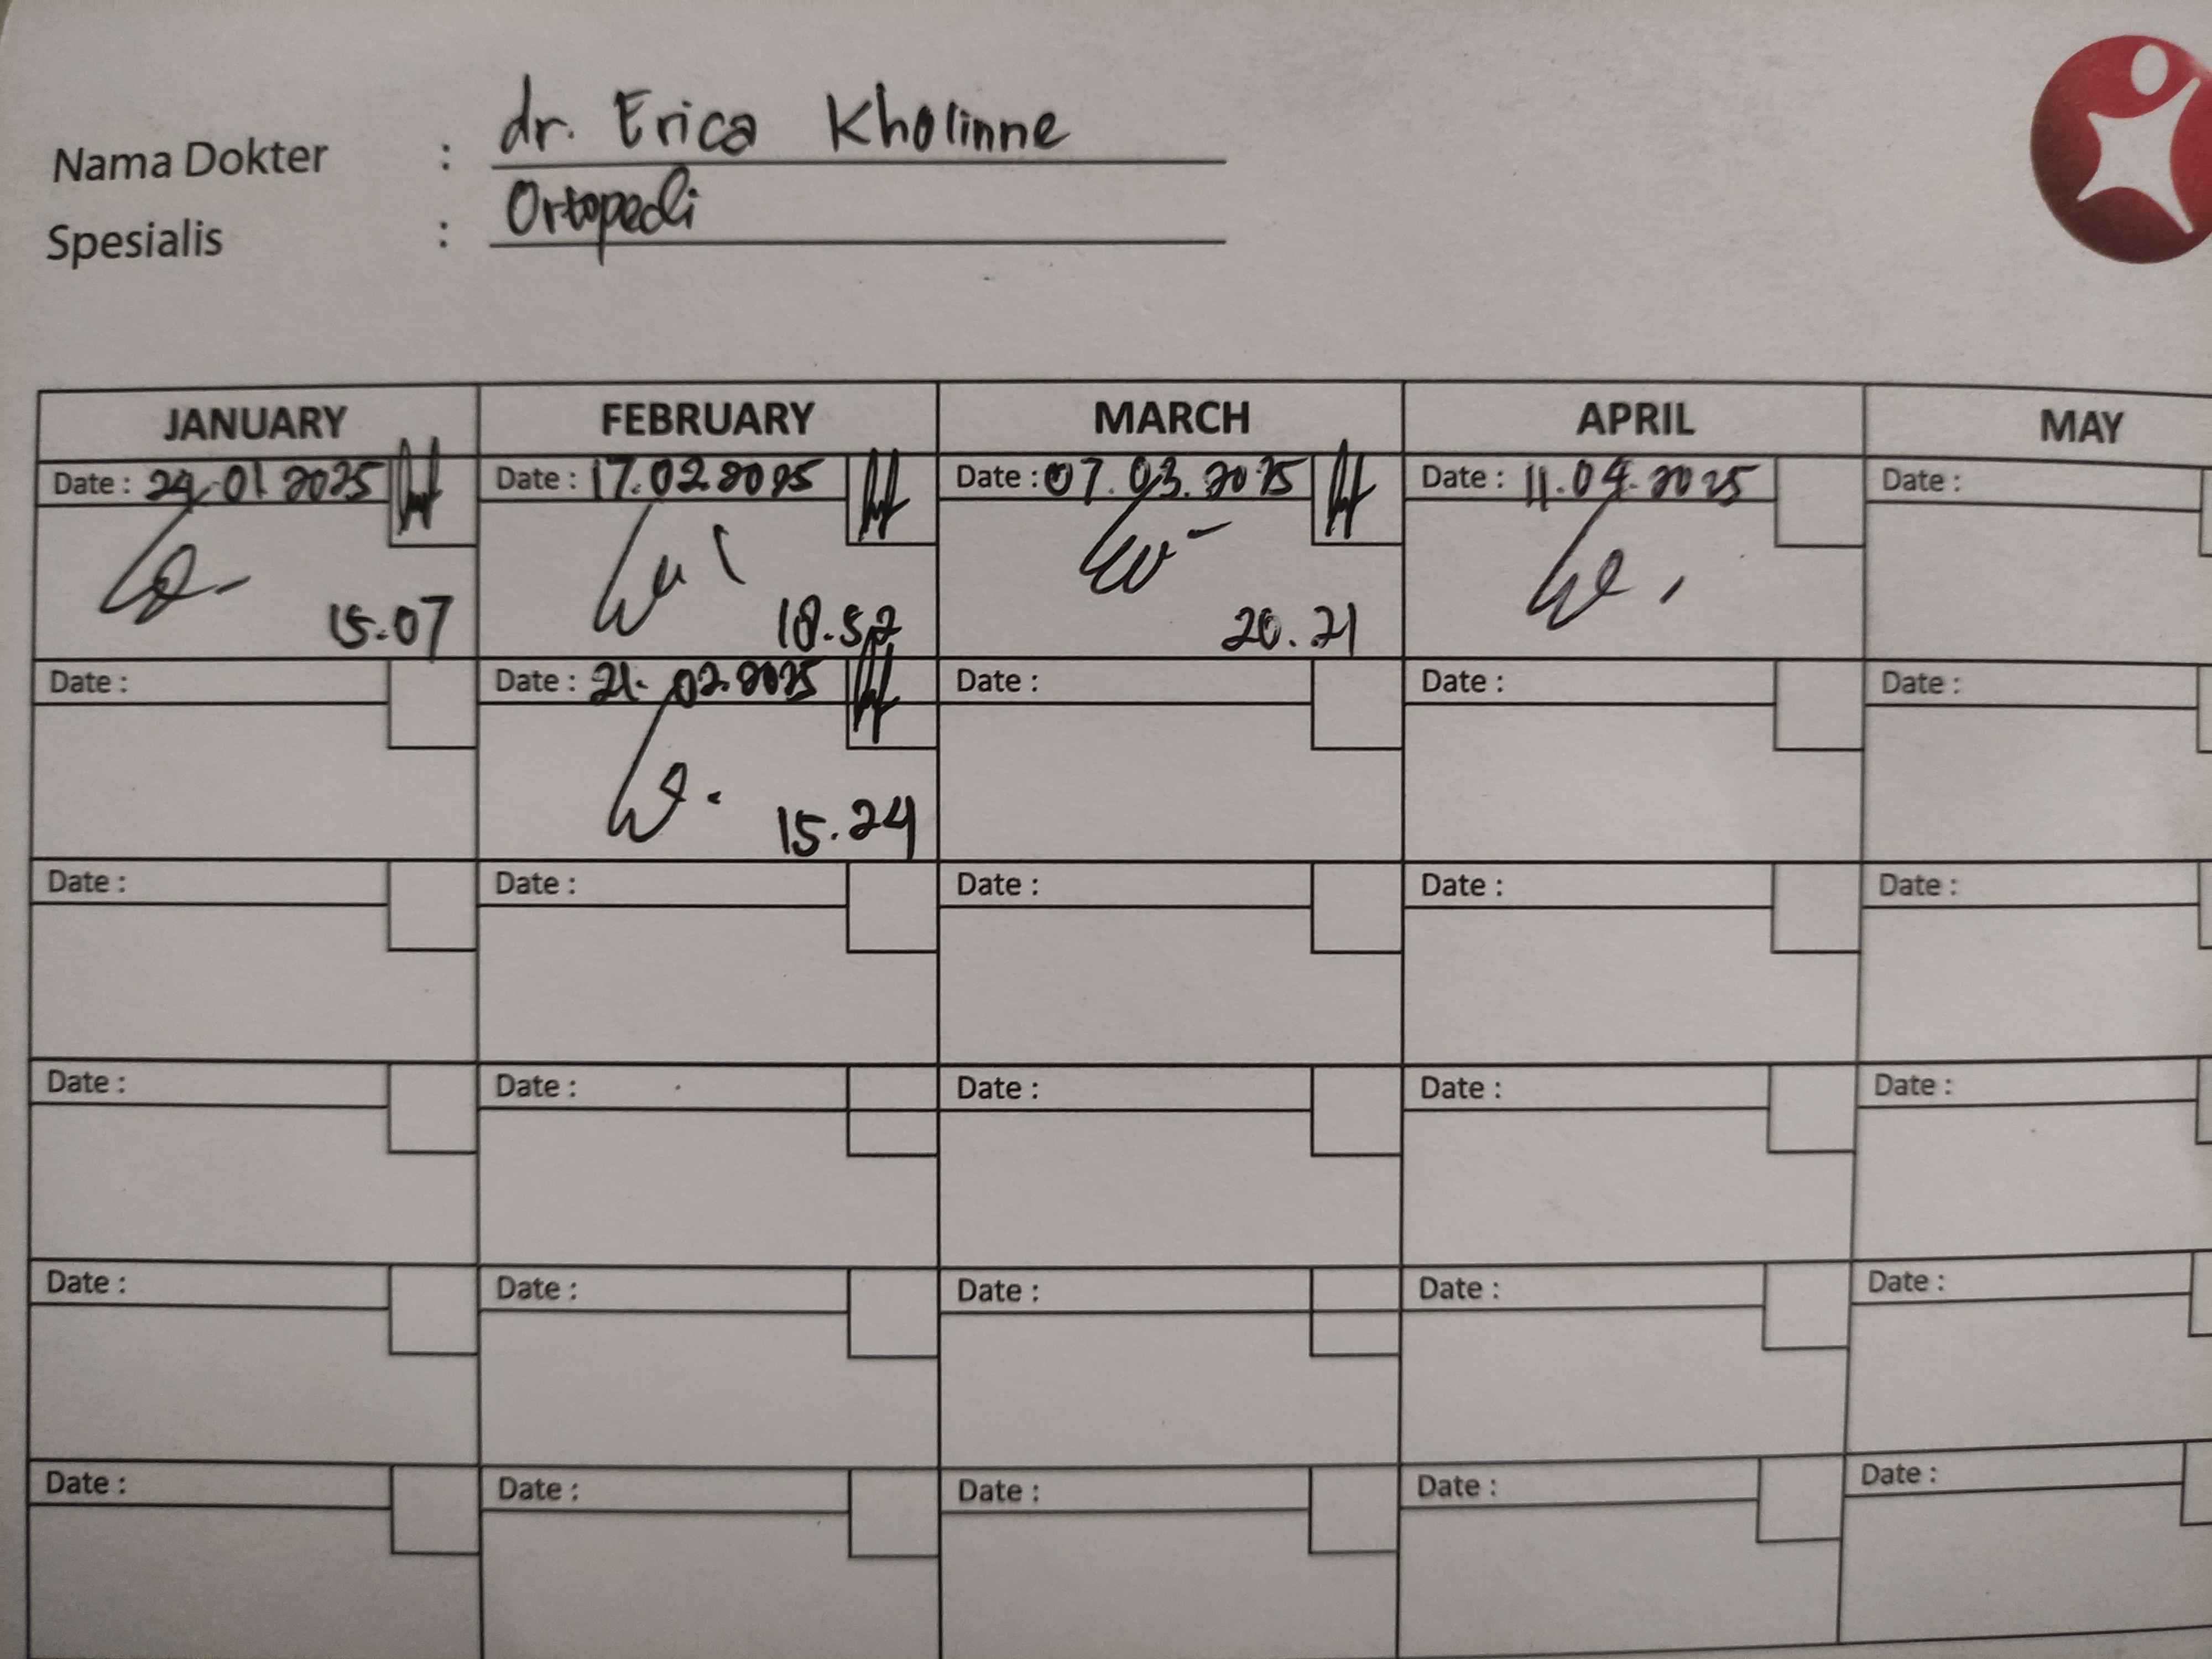 Nama Dokter : dr. Erica Kholinne
Spesialis : Ortopedi
JANUARY FEBRUARY MARCH APRIL MAY
Date : 24.01 2025 Date : 17.02 2025 Date : 07.03.2025 Date : 11.04.2025 Date :
15.07 18.52 20.21
Date : Date : 21.02.2025 Date : Date : Date :
15.24
Date : Date : Date : Date : Date :
Date : Date : Date : Date : Date :
Date : Date : Date : Date : Date :
Date : Date : Date : Date : Date :